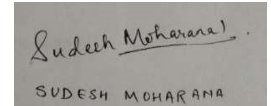 Sudesh Moharana
SUDESH MOHARANA